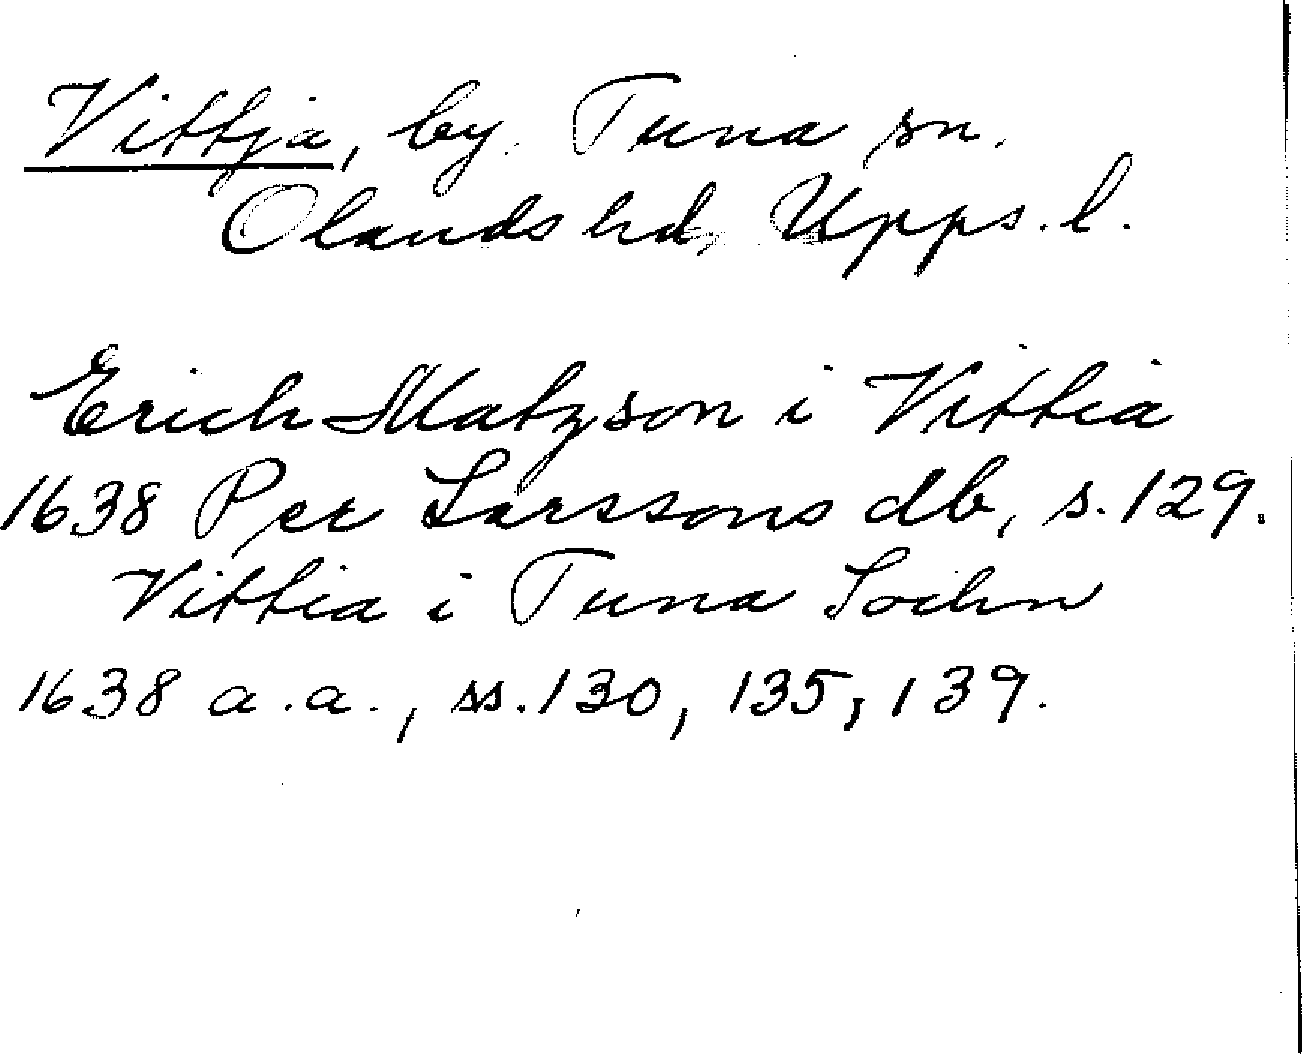 Vittja, by. Tuna sn.
Olands hd, Upps. l.
Erich Matzson i Vittia
1638 Per Larssons db, s. 129.
Vittia i Tuna Sochn
1638 a.a., ss. 130, 135, 139.